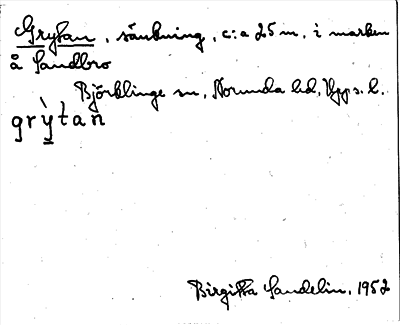 Grytan, sänkning, c:a 25 m, i marken
å Sandbro
Björklinge sn, Norunda hd, Upps. l.
grỳ̱tan
Birgitta Sandelin, 1952